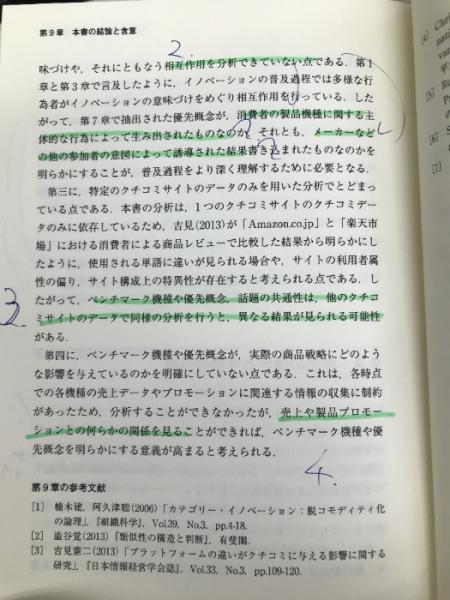 第9章 本書の結論と含意
2.
味づけや，それにともなう相互作用を分析できていない点である．第1
章と第3章で言及したように，イノベーションの普及過程では多様な行
為者がイノベーションの意味づけをめぐり相互作用を行っている．した
がって，第7章で抽出された優先概念が，消費者の製品機種に関する主
体的な行為によって生み出されたものなのか，それとも，メーカーなど
の他の参加者の意図によって誘導された結果書き込まれたものなのかを
明らかにすることが，普及過程をより深く理解するために必要となる．
第三に，特定のクチコミサイトのデータのみを用いた分析でとどまっ
ている点である．本書の分析は，1つのクチコミサイトのクチコミデー
タのみに依存しているため，吉見(2013)が「Amazon.co.jp」と「楽天市
場」における消費者による商品レビューで比較した結果から明らかにし
たように，使用される単語に違いが見られる場合や，サイトの利用者属
性の偏り，サイト構成上の特異性が存在すると考えられる点である．し
3.
たがって，ベンチマーク機種や優先概念，話題の共通性は，他のクチコ
ミサイトのデータで同様の分析を行うと，異なる結果が見られる可能性
がある．
第四に，ベンチマーク機種や優先概念が，実際の商品戦略にどのよう
な影響を与えているのかを明確にしていない点である．これは，各時点
での各機種の売上データやプロモーションに関連する情報の収集に制約
があったため，分析することができなかったが，売上や製品プロモー
ションとの何らかの関係を見ることができれば，ベンチマーク機種や優
先概念を明らかにする意義が高まると考えられる．
4.
第9章の参考文献
[1] 楠木建，阿久津聡(2006)「カテゴリー・イノベーション：脱コモディティ化
の論理」，『組織科学』，Vol.39，No.3，pp.4-18．
[2] 澁谷覚(2013)『類似性の構造と判断』，有斐閣．
[3] 吉見憲二(2013)「プラットフォームの違いがクチコミに与える影響に関する
研究」，『日本情報経営学会誌』，Vol.33，No.3，pp.109-120．
[4] Chri
nati
var
[5]
[6] S
[7]